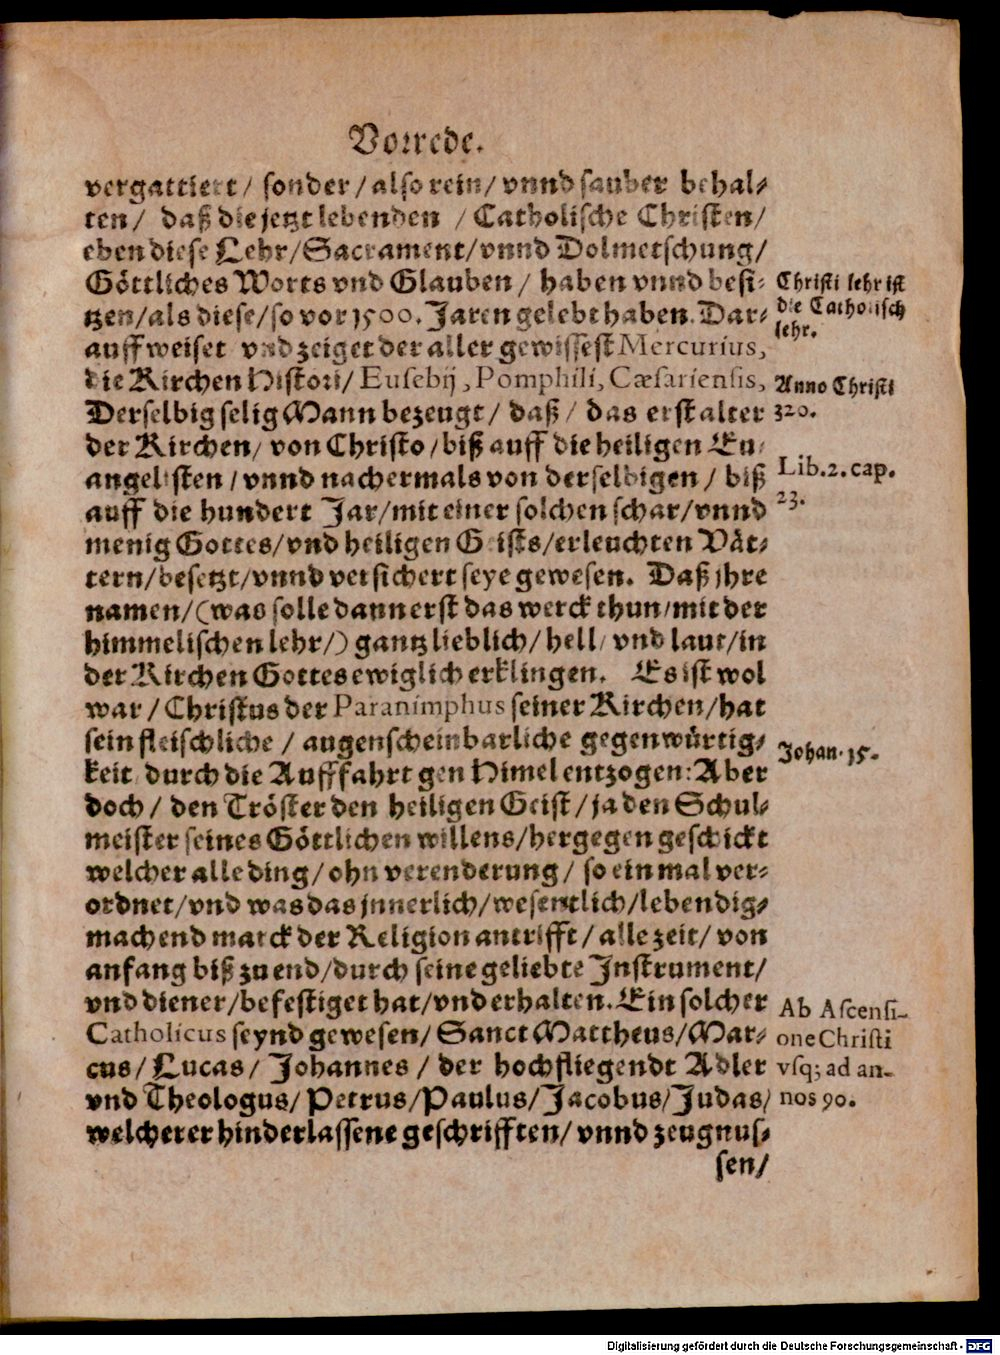 Vorrede.
vergattiert / sonder / also rein / vnnd sauber behal⸗
ten / daß die jetzt lebenden / Catholische Christen /
eben diese Lehr / Sacrament / vnnd Dolmetschung /
Göttliches Worts vnd Glauben / haben vnnd besi⸗
tzen / als diese / so vor 1500. Jaren gelebt haben. Dar⸗
auff weiset vnd zeiget der aller gewissest Mercurius,
die Kirchen Histori / Eusebij, Pomphili, Cæsariensis,
Derselbig selig Mann bezeugt / daß / das erst alter
der Kirchen / von Christo / biß auff die heiligen Eu⸗
angelisten / vnnd nachermals von derselbigen / biß
auff die hundert Jar / mit einer solchen schar / vnnd
menig Gottes / vnd heiligen Geists / erleuchten Vät⸗
tern / besetzt / vnnd versichert seye gewesen. Daß jhre
namen / (was solle dann erst das werck thun / mit der
himmelischen lehr /) gantz lieblich / hell / vnd laut / in
der Kirchen Gottes ewiglich erklingen. Es ist wol
war / Christus der Paranimphus seiner Kirchen / hat
sein fleischliche / augenscheinbarliche gegenwürtig⸗
keit / durch die Auffahrt gen Himel entzogen: Aber
doch / den Tröster den heiligen Geist / ja den Schul⸗
meister seines Göttlichen willens / hergegen geschickt
welcher alle ding / ohn verenderung / so ein mal ver⸗
ordnet / vnd was das jnnerlich / wesentlich / lebendig⸗
machend marck der Religion antrifft / alle zeit / von
anfang biß zu end / durch seine geliebte Instrument /
vnd diener / befestiget hat / vnd erhalten. Ein solcher
Catholicus seynd gewesen / Sanct Mattheus / Mar⸗
cus / Lucas / Johannes / der hochfliegendt Adler
vnd Theologus / Petrus / Paulus / Jacobus / Judas /
welcher er hinderlassene geschrifften / vnnd zeugnus⸗
sen /
Christi lehr ist
die Catholisch
lehr.
Anno Christi
320.
Lib. 2. cap.
23.
Johan. 15.
Ab Ascensi-
one Christi
vsq; ad an-
nos 90.
Digitalisierung gefördert durch die Deutsche Forschungsgemeinschaft - DFG